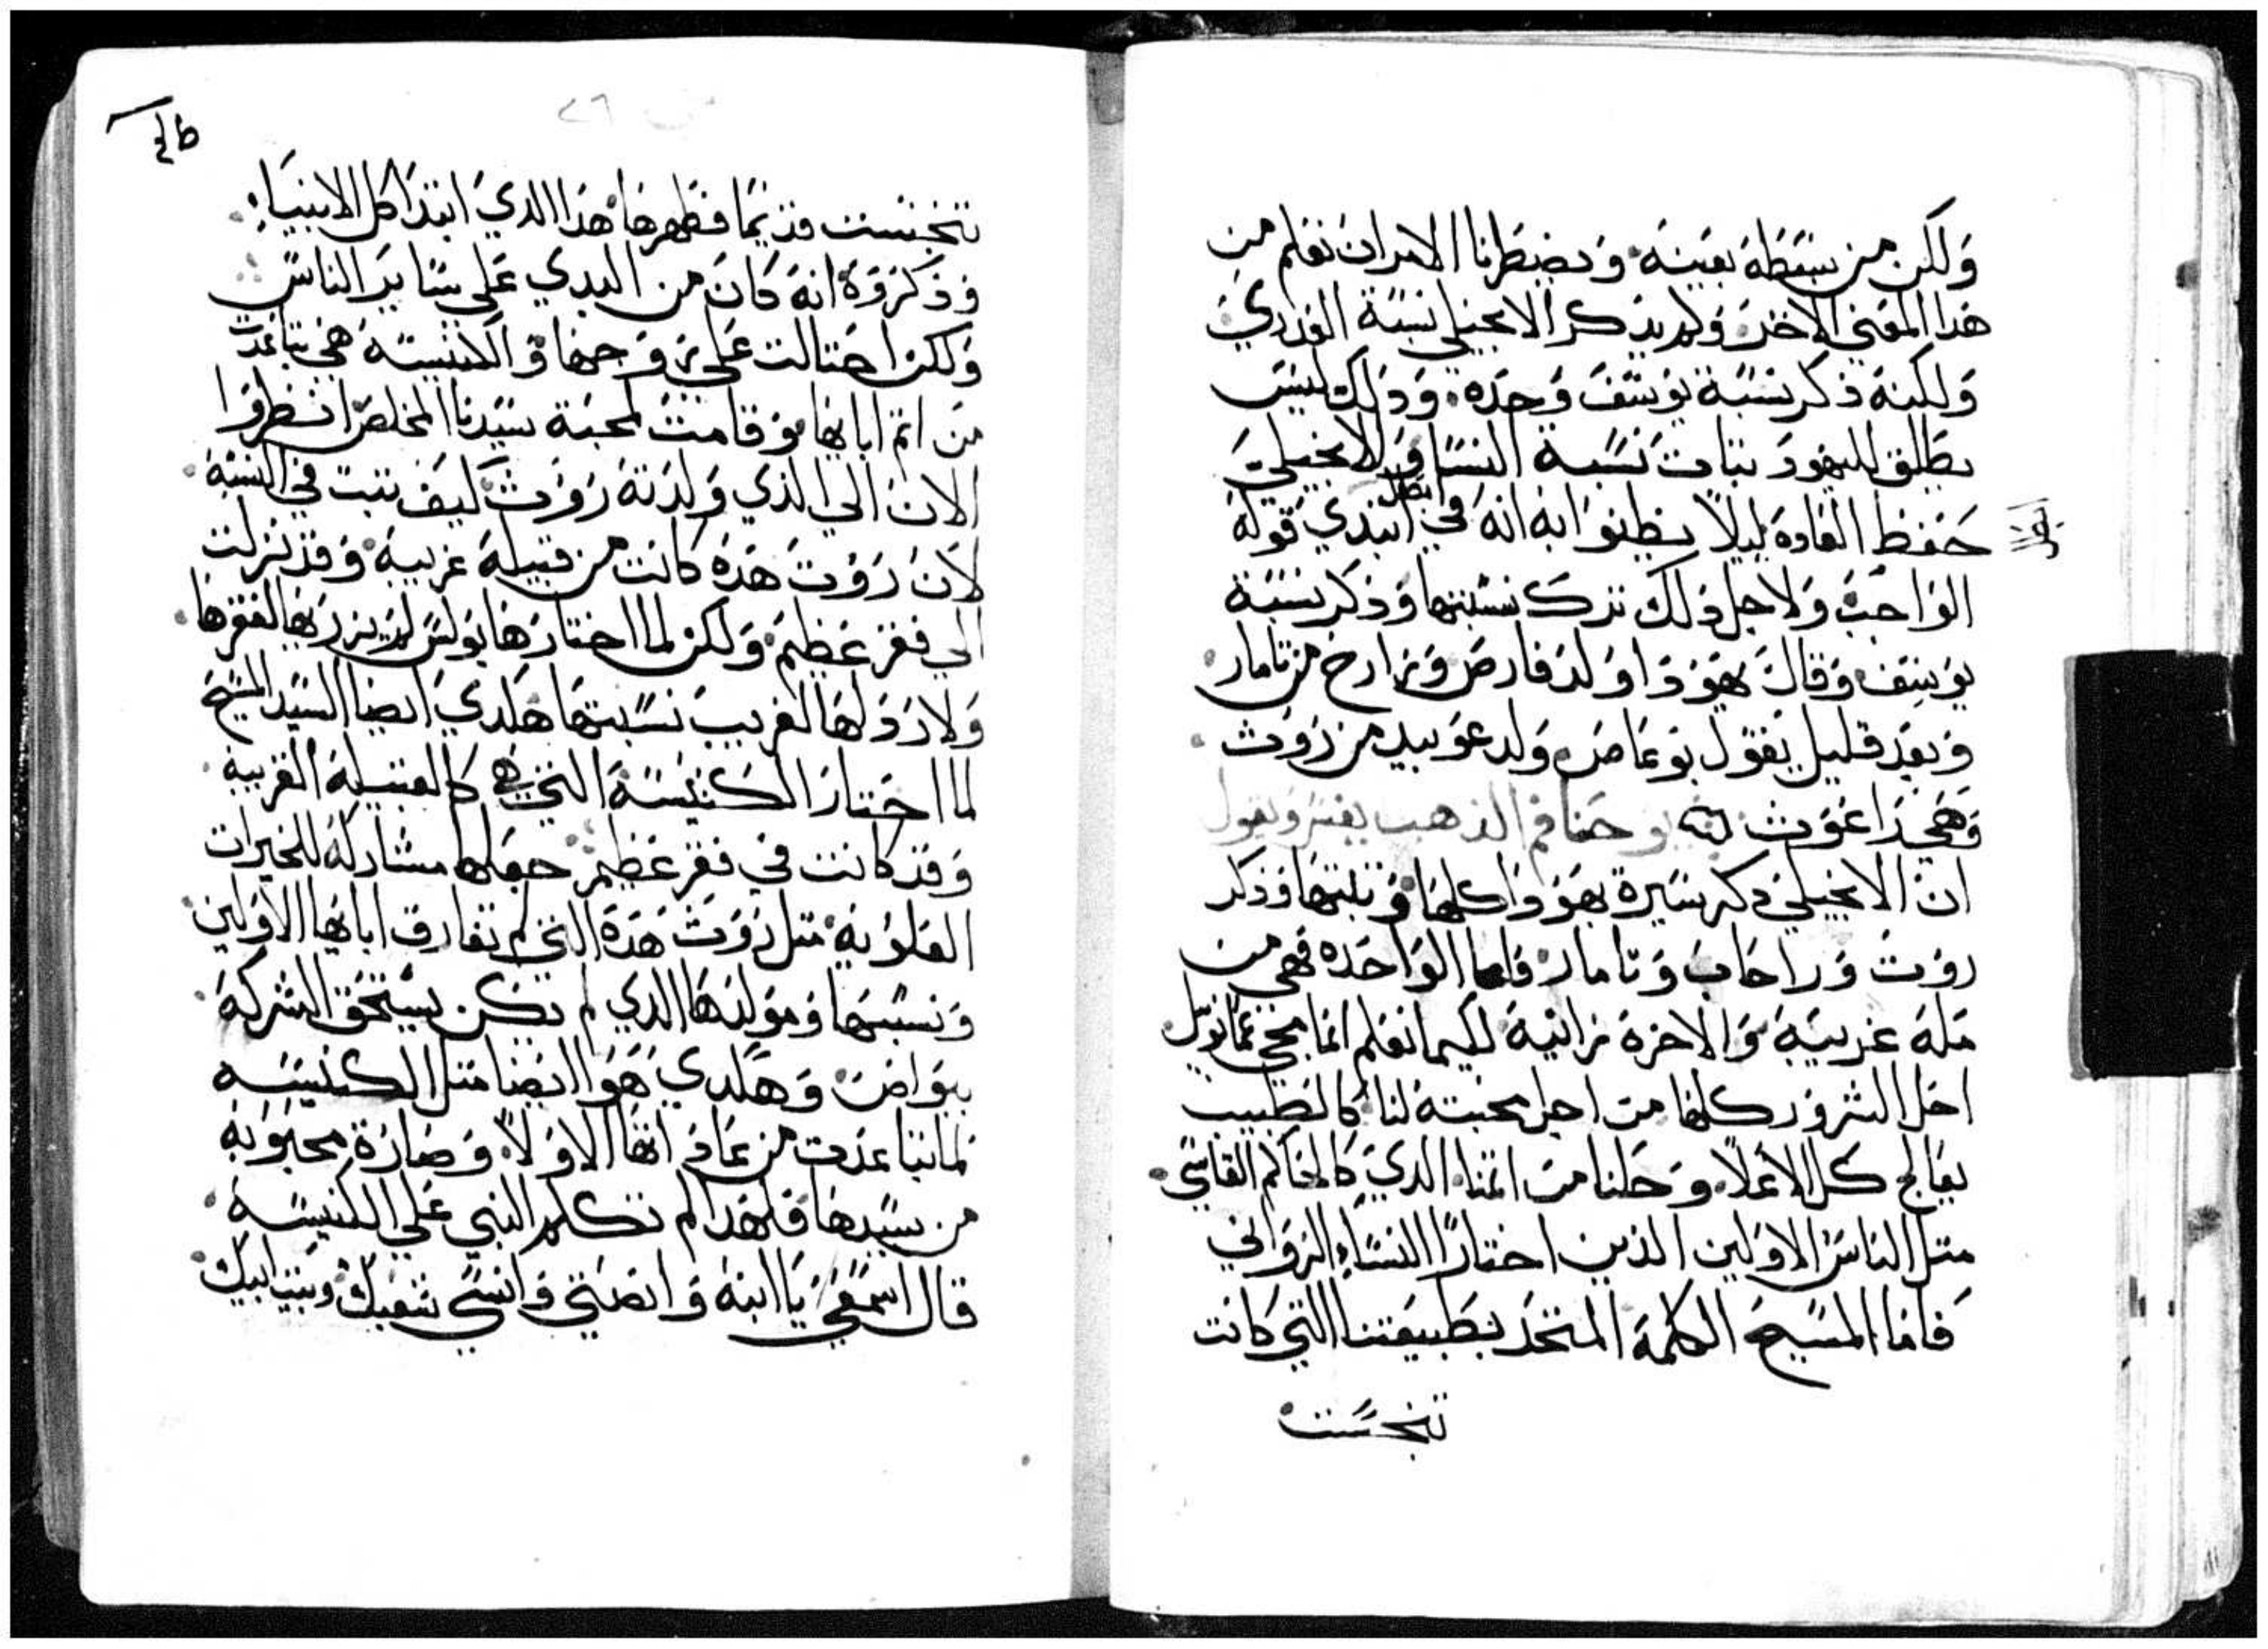 ولكن من سقطه بعينه. ويضطرنا الامر ان نعلم من
هدا المعني الاخر. ولم يدكر الانجيلي نسبة العدري
ولكنه ذكر نسبة يوسف وحده. ودلك ليس
يطلق لليهود نتبات نسبة النسا. والانجيلي
حفظ العاده ليلا يظنوا به انه في ابتدي قوله
ابطل
الواجب ولاجل دلك ترك نسبتها ودكر نسبة
يوسف وقال يهودا اولد فارص وزارح من تامار.
وبعد قليل يقول بوعاص ولد عوبيد من روث.
وهي راعوث يوحنا فم الذهب يفسر ويقول
ان الانجيلي دكر سيرة يهودا كلها وثلبتها ودكر
روث وراحاب وتامار فاما الواحده فهي من
مله غريبة والاخرة زانية لكيما نعلم انما
احل الشرور كلها من اجل محبته لنا كالطبيب
يعالج كل الاعلا. وحلنا من اثمنا الدي كالحاكم القاسي.
متل الناس الاولين الذين اختارا النساء الزواني
فاما المسيح الكلمة المتحد بطبيعتنا التي كانت
تنجست
تنجست قديما فطهرها هدا الدي ابتدا كل الانبيا.
وذكروه انه كان من البدي علي ساير الناس
ولكن احتالت علي زوجها والكنيسة هي تباعدت
من اتم ابايها وقامت لمحبة سيدنا المخلص انظروا
الان الي الذي ولدته روث كيف تبت في النسبة.
لان روث هده كانت من قبيلة غريبة وقد نزلت
الي فقر عظيم ولكن لما اختارها بولس لم يزدريها لفقرها.
ولا رذلها لغريب نسبتها هكدي ايضا السيد المسيح
لما اختار الكنيسة التي هي كالقبيلة الغريبة.
وقد كانت في فقر عظيم جعلها مشاركة للخيرات
العلوية متل روث هده التي لم تفارق ابايها الاولين.
ونسبها ومولدها الدي لم تكن يستحق الشركة.
ببواص. وهكدي هو ايضا متل الكنيسه
لما تباعدت من عاداتها الاولا وصارة محبوبة
من سيدها فلهدا لم تكلم النبي علي الكنيسة.
قال اسمعي يا ابنة وانصتي وانسي شعبك وبيت ابيك.